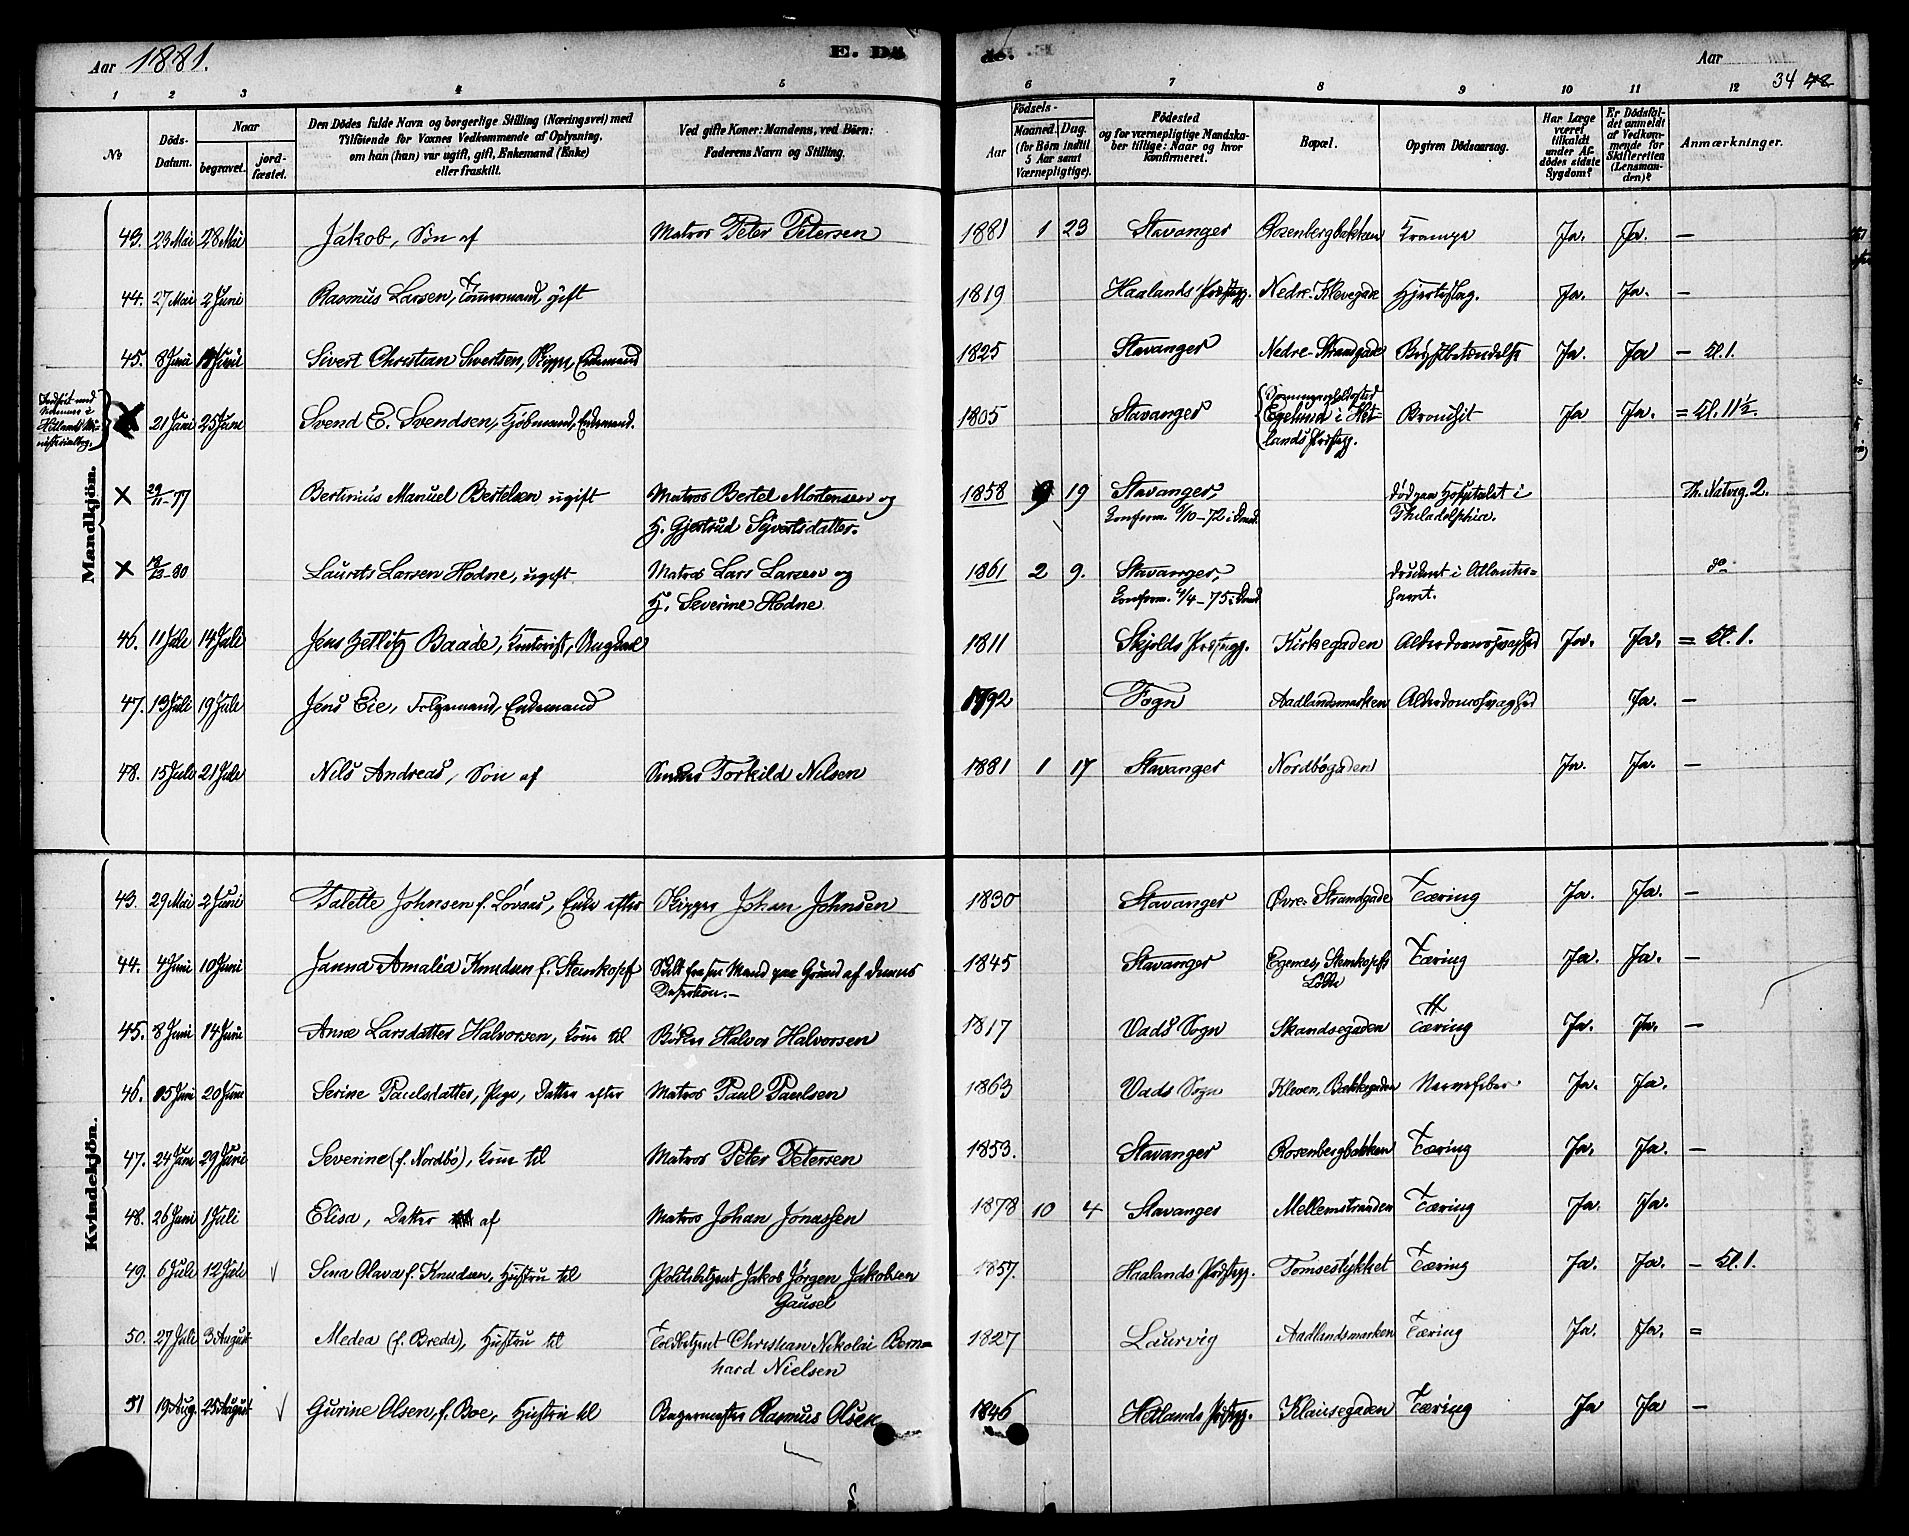 Aar 1881.
E. Dö
de.
Aar
34 48
1 2 3 4 5 6 7 8 9 10 11 12
No
Döds-
Datum.
Naar
begravet.
jord-
fæstet.
Den Dödes fulde Navn og borgerlige Stilling (Næringsvei) med
Tilföiende for Voxnes Vedkommende af Oplysning,
om han (hun) var ugift, gift, Enkemand (Enke)
eller fraskilt.
Ved gifte Koner: Mandens, ved Börn:
Faderens Navn og Stilling.
Födsels-
Aar
Maaned.
Dag.
(for Börn indtil
5 Aar samt
Værnepligtige).
Födested
og for værnepligtige Mandska-
ber tillige: Naar og hvor
konfirmeret.
Bopæl.
Opgiven Dödsaarsag.
Har Læge
været
tilkaldt
under Af-
dödes sidste
Sygdom?
Er Dödsfal-
det anmeldt
af Vedkom-
mende for
Skifteretten
(Lensman-
den)?
Anmærkninger.
Mandkjön.
43. 23 Mai 28 Mai Jakob, Søn af Matros Peter Petersen 1881 1 23 Stavanger Rosenbergbakken Krampe Ja. Ja. —
44. 27 Mai 2 Juni Rasmus Larsen, Tømmermand, gift 1819 Haalands Præstegj. Nedre Klevegade Hjerteslag. Ja. Ja. —
45. 8 Juni Juni Sivert Christian Sivertsen, Skipper, Enkemand 1825 Stavanger Nedre Strandgade Brystbetændelse Ja. Ja — Kl. 1.
21 Juni 25 Juni Svend E. Svendsen, Kjøbmand, Enkemand. 1805 Stavanger
Egelund i Het-
lands Præstegj.
Bronchit Ja Ja. = Kl. 11½.
× 29/11-77 Bertinius Manuel Bertelsen ugift Matros Bertel Mortensen og
H. Gjertrud Sivertsdatter.
1858 9 19 Stavanger,
Konferm. 6/10-72 i Dmk.
død paa Hospitalet i
Philadelphia.
Th. Natvig. 2.
× -80 Laurits Larsen Hodne, ugift Matros Lars Larsen og
H. Severine Hodne
1861 2 9. Stavanger,
Konferm. 4/4-75 i Dmk
druknet i Atlanter-
havet.
do
46. 11 Juli 14 Juli Jens Zetlitz Baade, Kontorist, Ungkarl 1811 Skjolds Præstegj. Kirkegaden Alderdomssvaghed Ja. Ja. = Kl. 1.
47. 13 Juli 19 Juli Jens Eie, Følgemand, Enkemand 1792 Fogn Aadlandsmarken Alderdomssvaghed Ja. —
48. 15 Juli 21 Juli Nils Andreas, Søn af Snedker Torkild Nilsen 1881 1 17 Stavanger Nordbøgaden Ja. Ja. —
Kvindekjön.
43. 29 Mai 2 Juni Talette Johnsen f. Løvaas, Enke efter Skipper Johan Johnsen 1830 Stavanger Øvre Strandgade Tæring Ja. Ja. —
44. 4 Juni 10 Juni Janna Amalia Knudsen f. Steinkopf Skilt fra sin Mand paa Grund af dennes
Desertion.—
1845 Stavanger Egenæs, Stenkopfs
Løkke
Tæring Ja. Ja. —
45. 8 Juni 14 Juni Anne Larsdatter Halvorsen, Kone til Bødker Halvor Halvorsen 1817 Vads Sogn Skandsegaden Tæring Ja. Ja. —
46. 15 Juni 20 Juni Serine Paulsdatter, Pige, Datter efter Matros Paul Paulsen 1863 Vads Sogn Kleven, Bakkegaden Nervefeber Ja. Ja.
47. 24 Juni 29 Juni Severine (f. Nordbø), Kone til Matros Peter Petersen 1853. Stavanger Rosenbergbakken Tæring Ja. Ja. —
48. 26 Juni 1 Juli Elisa, Datter af Matros Johan Jonassen 1878 10 4 Stavanger Mellemstranden Tæring Ja. Ja.
49. 6 Juli 12 Juli Sina Olava f. Knudsen, Hustru til Politibetjent Jakob Jørgen Jakobsen
Gausel
1857. Haalands Præstegj. Tomsestykket Tæring Ja. Ja. — Kl. 1.
50. 27 Juli 3 August Medea (f. Bredd), Hustru til Toldbetjent Christian Nikolai Bern-
hard Nielsen
1827 Laurvig Aadlandsmarken Tæring Ja. Ja. =
51 19 Aug. 25 August Gurine Olsen, f. Boe, Hustru til Bagermester Rasmus Olsen 1846 Hetlands Præstegj. Klausegaden Tæring Ja Ja —